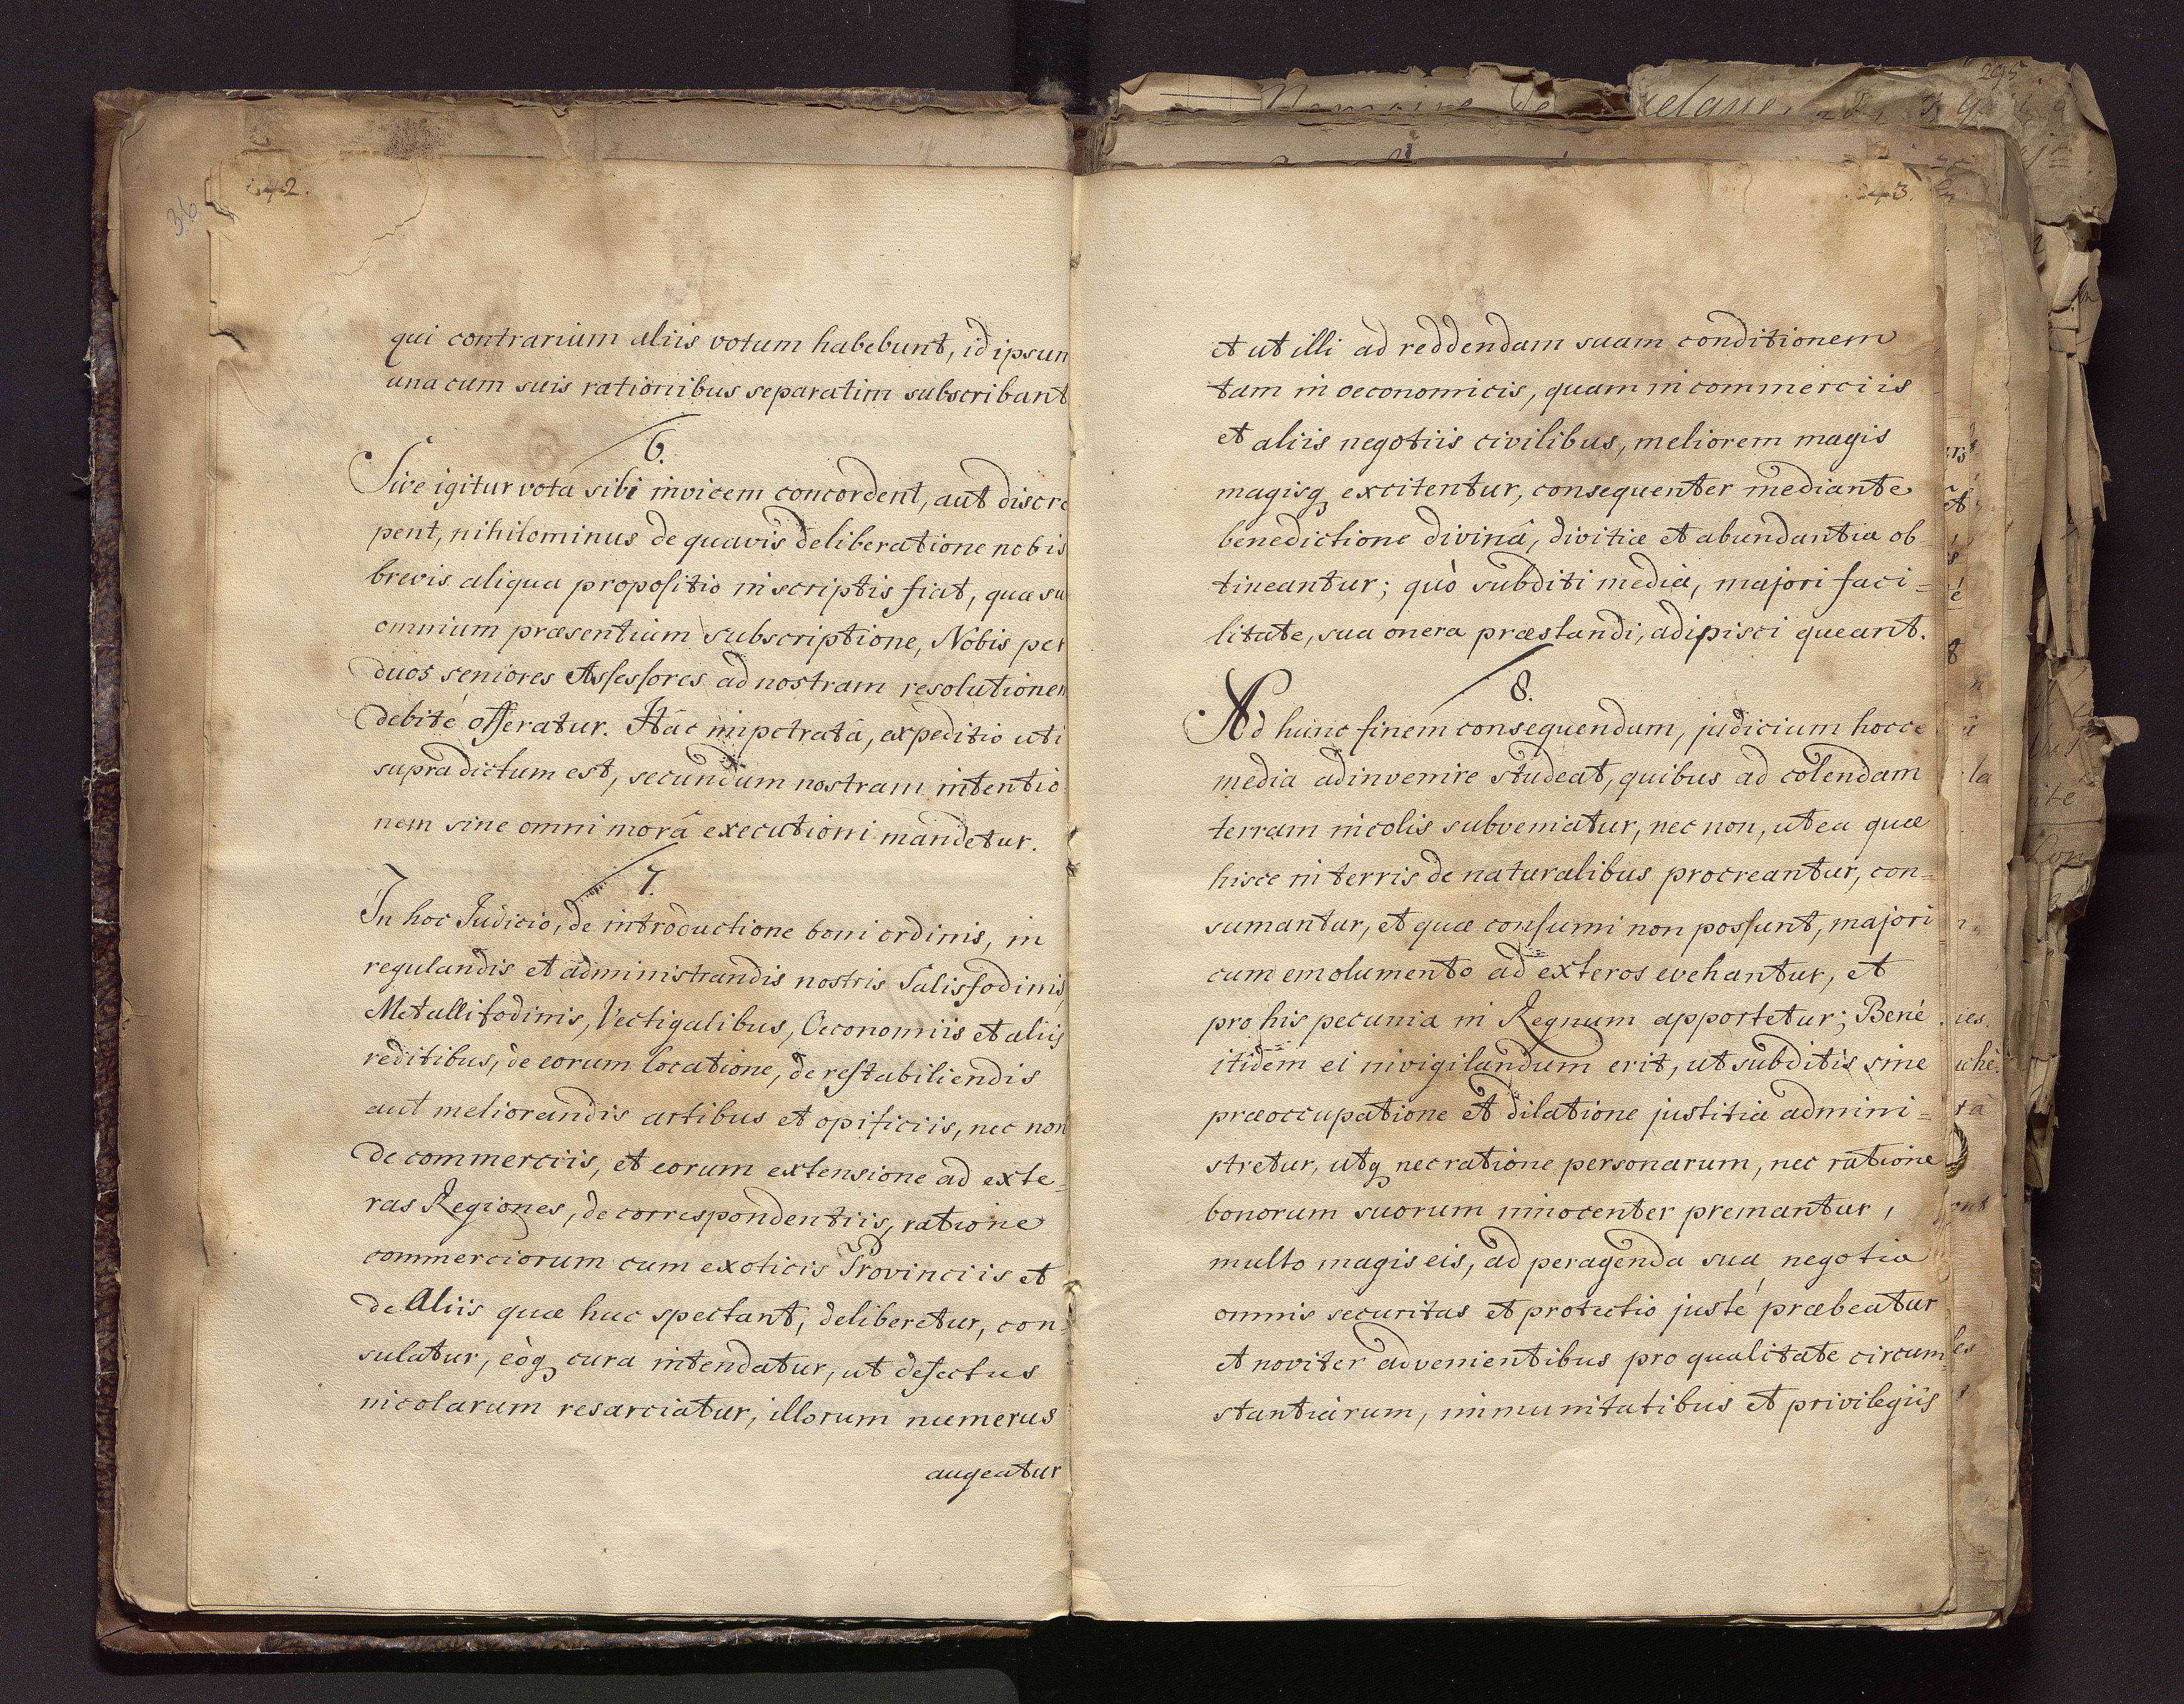 36
42.
qui contrarium aliis votum habebunt, id ipsum
una cum suis rationibus separatim subscribant
6.
Sive igitur vota sibi invicem concordent, aut discre
pent, nihilominus de quavis deliberatione nobis
brevis aliqua propositio in scriptis fiat, quæ su
omnium præsentium subscriptione, Nobis per
duos seniores Assessores ad nostram resolutionem
debité offeratur. Hâc impetratâ, expeditio uti
supradictum est, secundum nostram intentio
nem sine omni morâ executioni mandetur.
7.
In hoc Judicio, de introductione boni ordinis, in
regulandis et administrandis nostris Salisfodinis,
Metallifodinis, Vectigalibus, Oeconomiis et aliis
reditibus, de eorum locatione, de restabiliendis
aut meliorandis artibus et opificiis, nec non
de commerciis, et eorum extensione ad exte-
ras Regiones, de correspondentiis, ratione
commerciorum cum exoticis Provinciis et
de Aliis quæ huc spectant, deliberetur, con-
sulatur, eòq cura intendatur, ut defectus
incolarum resarciatur, illorum numerus
augeatur
43.
et ut illi ad reddendam suam conditionem
tam in oeconomicis, quam in commerciis
et aliis negotiis civilibus, meliorem magis
magisq excitentur, consequenter mediante
benedictione divinâ, divitiæ et abundantia ob-
tineantur; quò subditi media, majori faci-
litate, sua onera præstandi, adipisci queant.
8.
Ad hunc finem consequendum, judicium hocce
media adinvenire studeat, quibus ad colendam
terram incolis subveniatur, nec non, ut ea quæ
hisce in terris de naturalibus procreantur, con-
sumantur, et quæ consumi non possunt, majori
cum emolumento ad exteros evehantur, et
pro his pecunia in Regnum apportetur; Bené
itidem ei invigilandum erit, ut subditis sine
præoccupatione et dilatione justitia admini-
stretur, utq nec ratione personarum, nec ratione
bonorum suorum innocenter premantur,
multo magis eis, ad peragenda sua negotia
omnis securitas et protectio justé præbeatur
et noviter advenientibus pro qualitate circum
stantiarum, immunitatibus et privilegiis